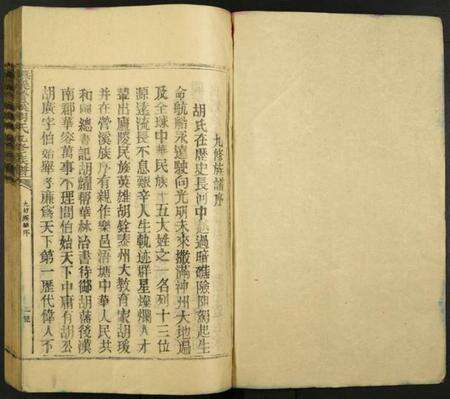 九修族譜序
胡氏在歷史長河中越過暗礁險阻朝起生
命航船永遠駛向光明未來撒滿神州大地遍
及全球中華民族十五大姓之一名列十三位
源遠流長不息艱辛人生軌迹群星燦爛人才
輩出廬陵民族英雄胡銓泰州大教育家胡瑗
并在營溪族序有親作樂邑浯塘中華人民共
和國總書記胡耀幫華林治書侍御胡藩後漢
南郡華容萬事不理問伯始天下中庸有胡公
胡廣字伯始舉孝廉為天下第一歷代偉人不
九修族譜序